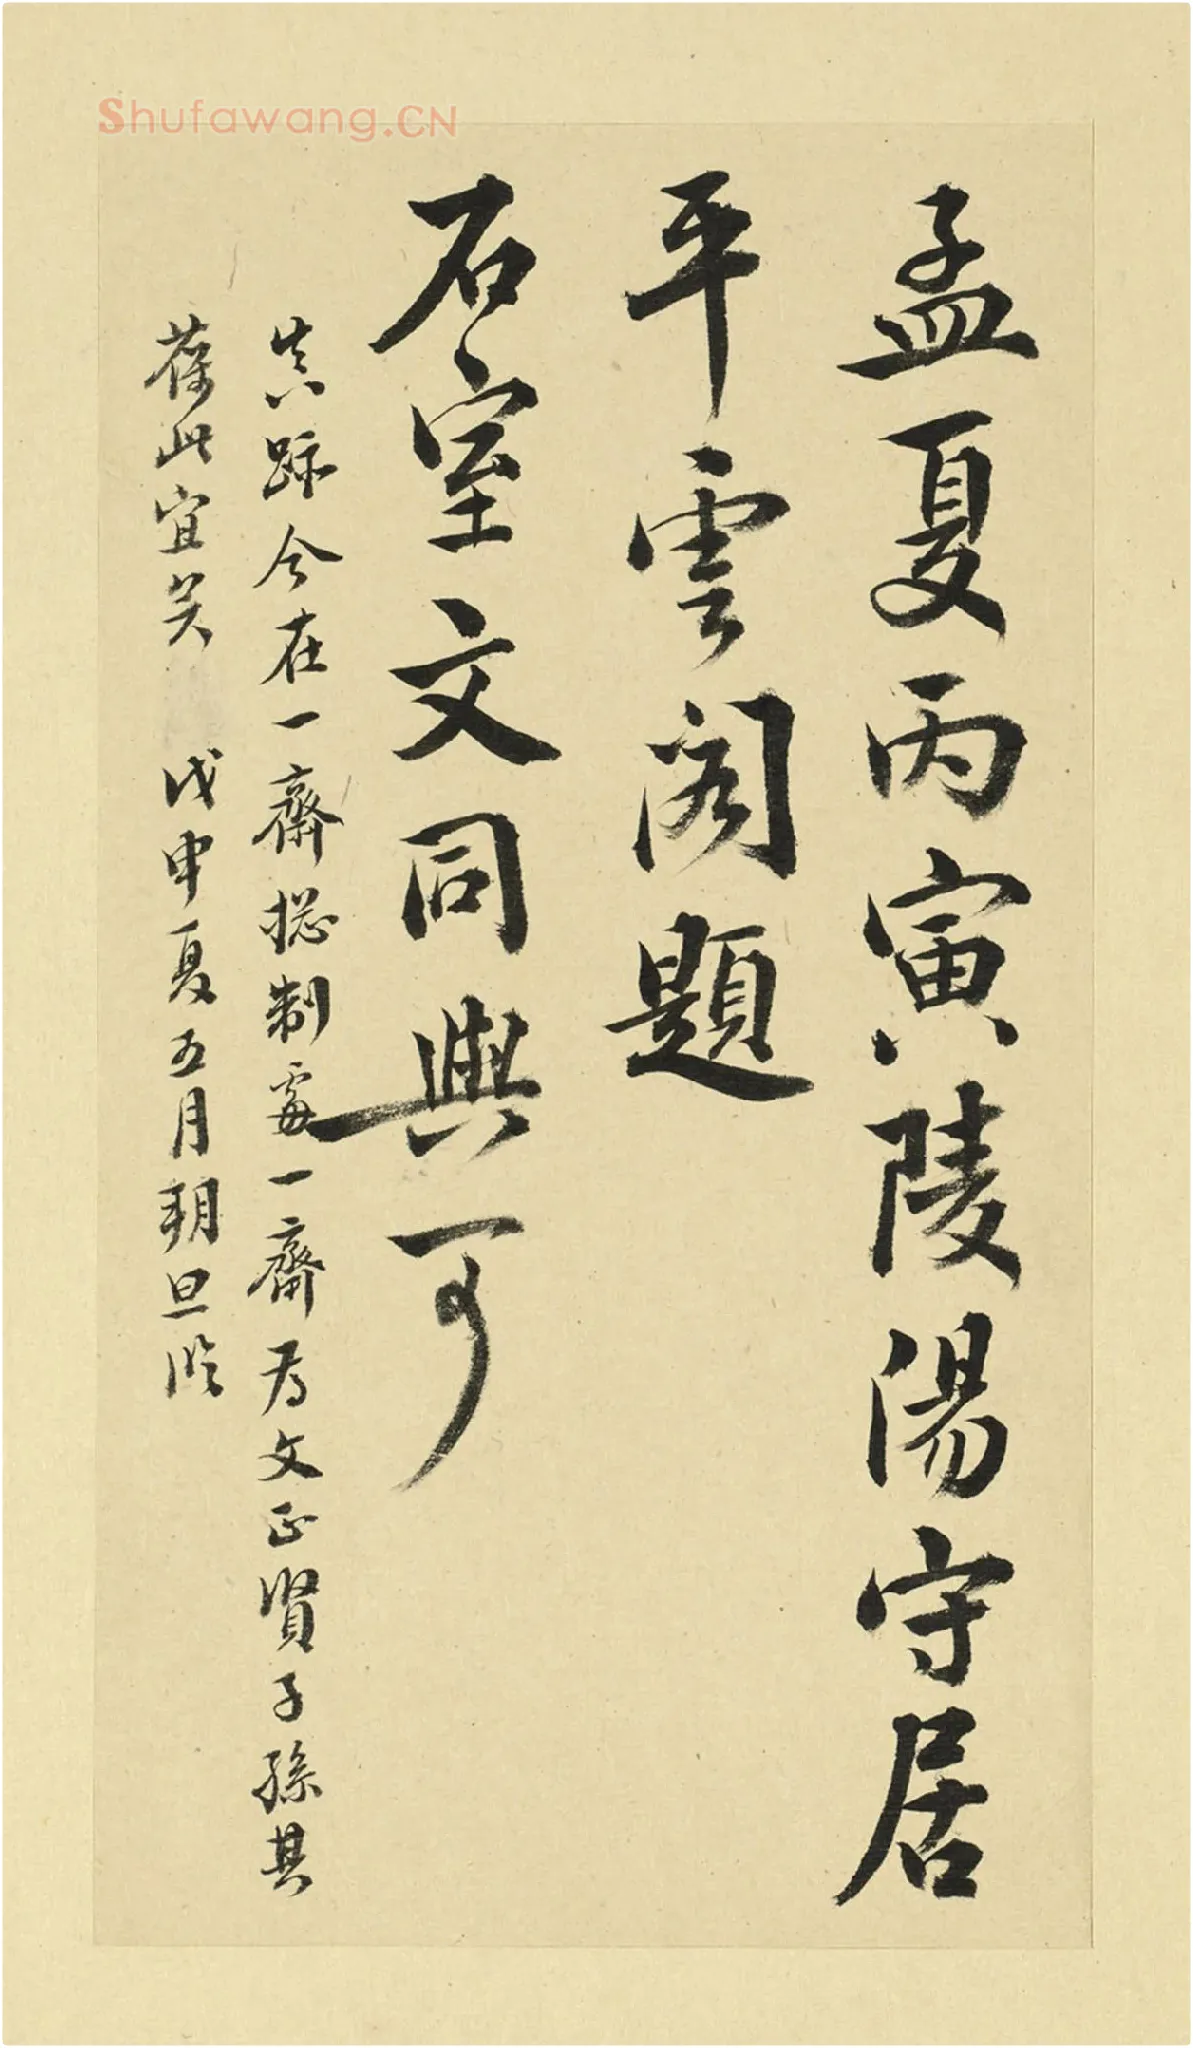 Shufawang.CN
孟夏丙寅陵陽守居
平雲閣題
石室文同與可
真跡今在一齋總制處一齋為文正賢子孫其
葆此宜矣 戊申夏五月朔旦臨